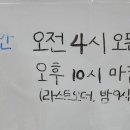 안 오전 4시 오픈
오후 10시 마감
(라스트오더, 밤 9시